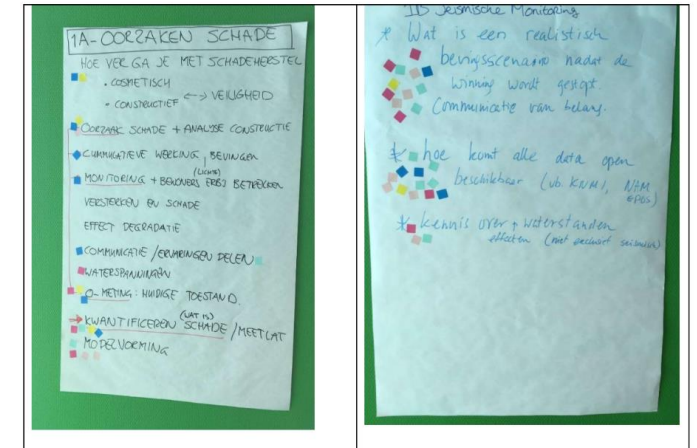 1A - OORZAKEN SCHADE
HOE VER GA JE MET SCHADEHERSTEL
• COSMETISCH
• CONSTRUCTIEF <-> VEILIGHEID
OORZAAK SCHADE + ANALYSE CONSTRUCTIE
CUMMULATIEVE WERKING BEVINGEN
(LICHTE)
MONITORING + BEWONERS ERBIJ BETREKKEN
VERSTERKEN EN SCHADE
EFFECT DEGRADATIE
COMMUNICATIE / ERVARINGEN DELEN
WATERSPANNINGEN
0-METING: HUIDIGE TOESTAND.
(WAT IS)
→ KWANTIFICEREN SCHADE / MEETLAT
MODELVORMING
1D Seismische Monitoring
* Wat is een realistisch
bevingsscenario nadat de
winning wordt gestopt.
Communicatie van belang.
* hoe komt alle data open
beschikbaar (vb. KNMI, NAM
* kennis over waterstanden
effecten (niet